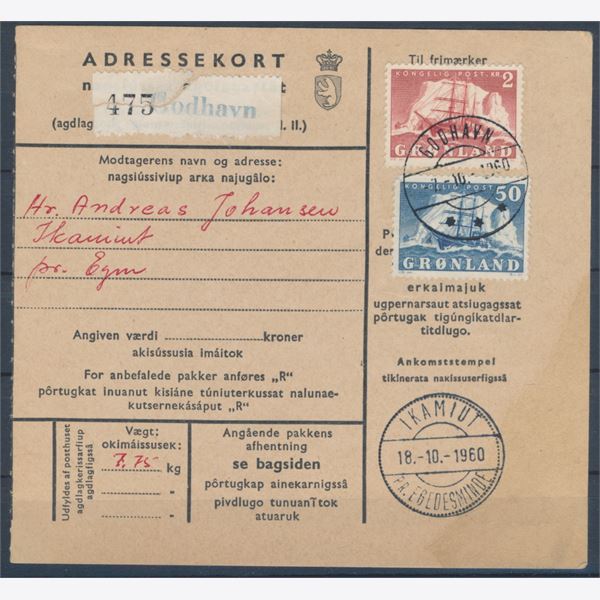 ADRESSEKORT
475 Godhavn
(agdlag
l. II.)
Modtagerens navn og adresse:
nagsiússiviup arĸa najugâlo:
Hr. Andreas Johansen
Ikamiut
pr. Egm
Angiven værdi kroner
akisússusia imáitoĸ
For anbefalede pakker anføres „R"
pôrtugkat inuanut kisiáne túniuterkussat nalunae-
kutsernekásáput „R"
Udfyldes af posthuset
agdlagkerissarfiup
agdlagfigssâ
Vægt:
okimáissusek:
7.75 kg
"
"
Angående pakkens
afhentning
se bagsiden
pôrtugkap ainekarnigssâ
pivdlugo tunuanītoĸ
atuaruk
Til frimærker
KONGELIG POST. KR. 2
GRØNLAND
GODHAVN
10.-1960
KONGELIG POST 50
GRØNLAND
erkaimajuk
ugpernarsaut atsiugagssat
pôrtugak tigúngikatdlar-
titdlugo.
Ankomststempel
tikinerata nakissuserfigssâ
IKAMIUT
18.-10.-1960
PR. EGEDESMINDE